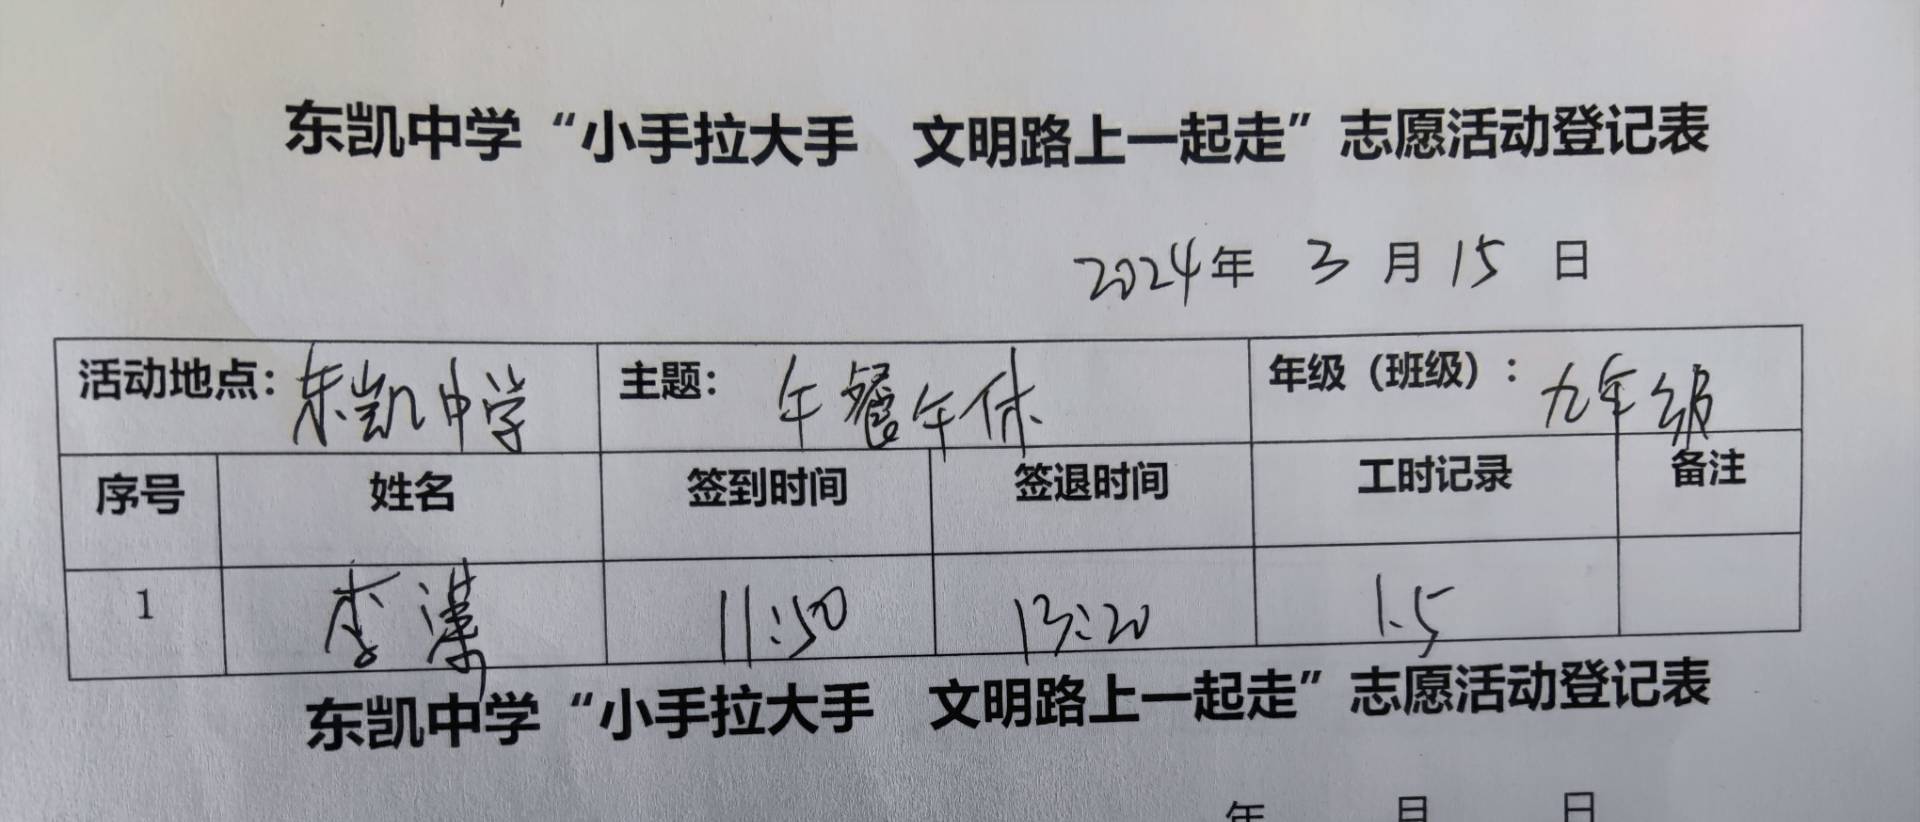 东凯中学“小手拉大手 文明路上一起走”志愿活动登记表
2024年 3 月 15 日
活动地点：东凯中学 主题： 午餐午休 年级（班级）：九年级
序号 姓名 签到时间 签退时间 工时记录 备注
1 李 11:50 13:20 1.5
东凯中学“小手拉大手 文明路上一起走”志愿活动登记表
年 月 日